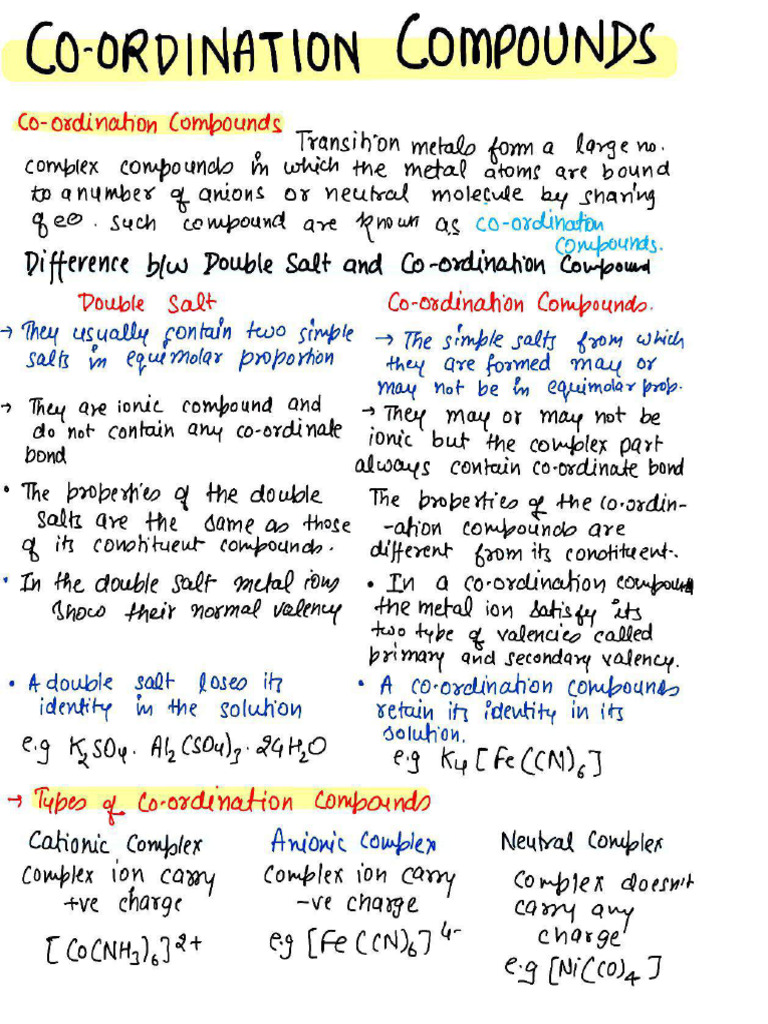 CO-ORDINATION COMPOUNDS
Co-ordination Compounds
Transition metals form a large no.
complex compounds in which the metal atoms are bound
to a number of anions or neutral molecule by sharing
of e⊖. such compound are known as co-ordination
compounds.
Difference b/w Double Salt and Co-ordination Compound
Double Salt
→ They usually contain two simple
salts in equimolar proportion
→ They are ionic compound and
do not contain any co-ordinate
bond
• The properties of the double
salts are the same as those
of its constituent compounds.
• In the double salt metal ions
show their normal valency
• A double salt loses its
identity in the solution
e.g K₂SO₄. Al₂(SO₄)₃.24H₂O
Co-ordination Compounds.
→ The simple salts from which
they are formed may or
may not be in equimolar prop.
→ They may or may not be
ionic but the complex part
always contain co-ordinate bond
The properties of the co-ordin-
-ation compounds are
different from its constituent.
• In a co-ordination compound
the metal ion satisfy its
two type of valencies called
primary and secondary valency.
• A co-ordination compounds
retain its identity in its
solution.
e.g K₄[Fe(CN)₆]
→ Types of Co-ordination Compounds
Cationic Complex
Complex ion carry
+ve charge
[Co(NH₃)₆]²⁺
Anionic Complex
Complex ion carry
-ve charge
e.g [Fe(CN)₆]⁴⁻
Neutral Complex
Complex doesn't
carry any
charge
e.g [Ni(CO)₄]